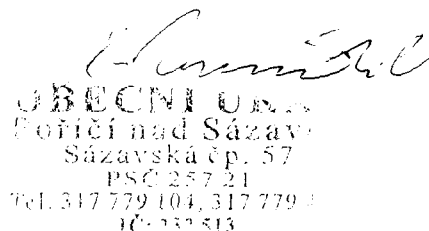 OBECNÍ
Poříčí nad Sázav
Sázavská čp. 57
PSČ 257 21
Tel. 317 779 104, 317 779
IČ: 232513